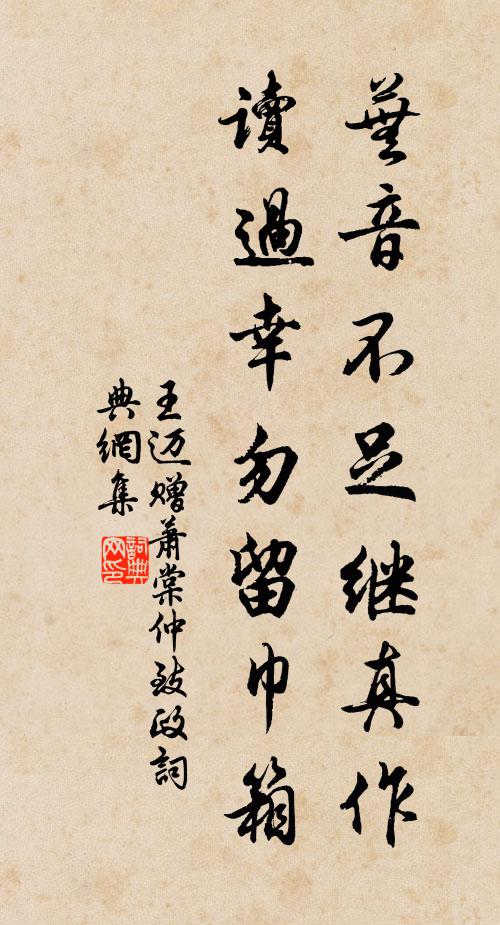 芜音不足继真作
讀過幸勿留巾箱
王迈贈蕭棠仲致政詞
典網集
詞典
网印